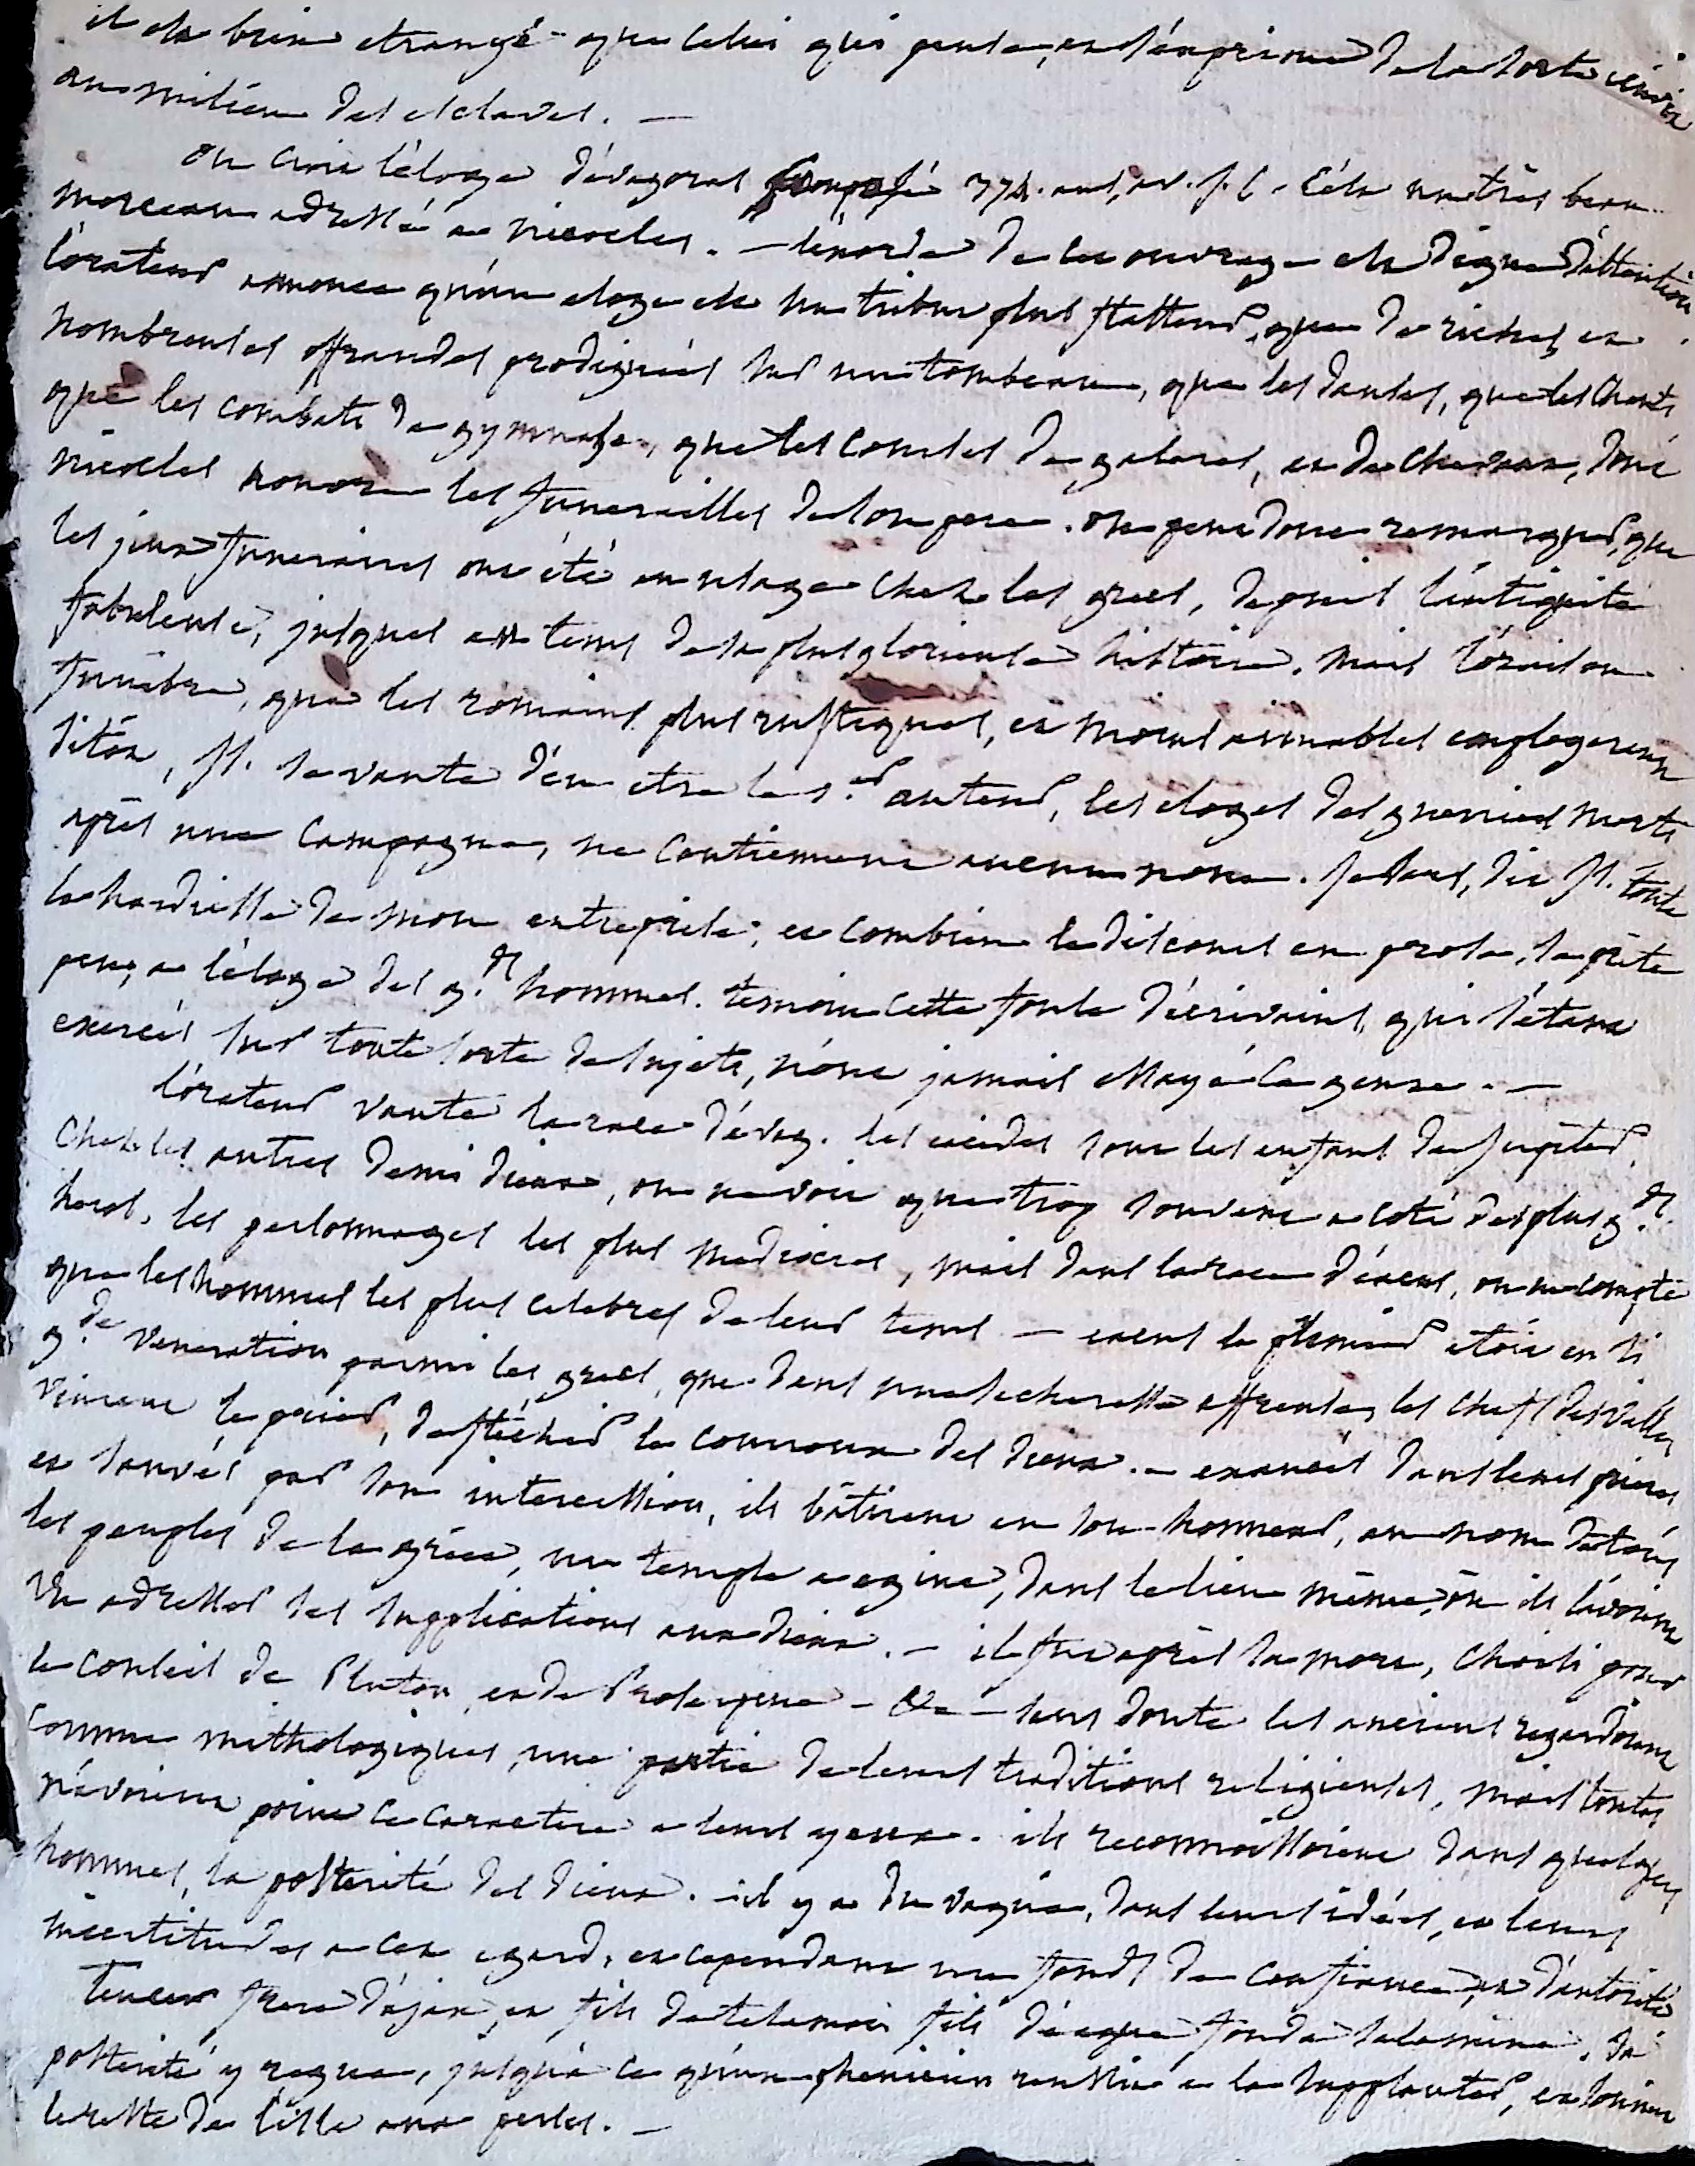 il est bien etrange que celui qui pense, et s'exprime de la sorte
au milieu des esclaves. —
on croit l'éloge d'évagoras composé 374. ans, av. J. C. C'est un très beau
morceau adressé a nicocles. — l'exorde de cet ouvrage est digne d'attention
l'orateur annonce qu'un eloge est un tribut plus flatteur, que de riches, et
nombreuses offrandes prodiguées sur un tombeau, que les danses, que les chants
que les combats de gymnase, que les courses de galeres, et de chevaux, dont
nicocles honora les funerailles de son pere. on peut donc remarquer, que
les jeux funeraires ont été en usage chez les grecs, depuis l'antiquité
fabuleuse, jusques au tems de la plus glorieuse histoire. mais l'oraison
funèbre, que les romains plus rustiques, et moins aimables employerent
sitôt, Is. se vante d'en etre le 1.er auteur, les eloges des guerriers morts
après une campagne, ne contiennent aucun nom. Je sens, dit Is. toute
la hardiesse de mon entreprise, et combien le discours en prose, se prête
peu, a l'éloge des g.ds hommes. temoin cette foule d'écrivains, qui s'étant
exercés sur toute sorte de sujets, n'ont jamais essayé ce genre. —
l'orateur vante la race d'évag. les eacides sont les enfans de Jupiter.
Chez les autres demi dieux, on ne voit que trop souvent a coté des plus g.ds
heros, les personnages les plus mediocres, mais dans la race d'éacus, on ne compte
que les hommes les plus celebres de leur tems — eacus le premier etoit en si
g.de veneration parmi les grecs, que dans une secheresse affreuse, les chefs des villes
vinrent le prier, de fléchir le couroux des dieux. — exaucés dans leurs prieres
et sauvés par son intercession, ils bâtirent en son honneur, au nom de tous
les peuples de la grèce, un temple a egine, dans le lieu même, où ils l'avoient
vu adresser ses supplications aux dieux. — il fut après sa mort, choisi pour
le conseil de Pluton, et de Proserpine — sans doute les anciens regardoient
comme mithologiques, une partie de leurs traditions religieuses, mais toutes
n'avoient point ce caractere a leurs yeux. ils reconnoissoient dans quelques
hommes, la posterité des dieux. — il y a du vague, dans leurs idées, et leurs
incertitudes a cet egard, et cependant un fonds de confiance, et d'autorité
teucer frere d'ajax, et fils de telamon fils d'eaque fonda salamine. sa
posterité y regna, jusqu'à ce qu'un phenicien reussit a la supplanter, et soumit
le reste de l'isle aux perses. —